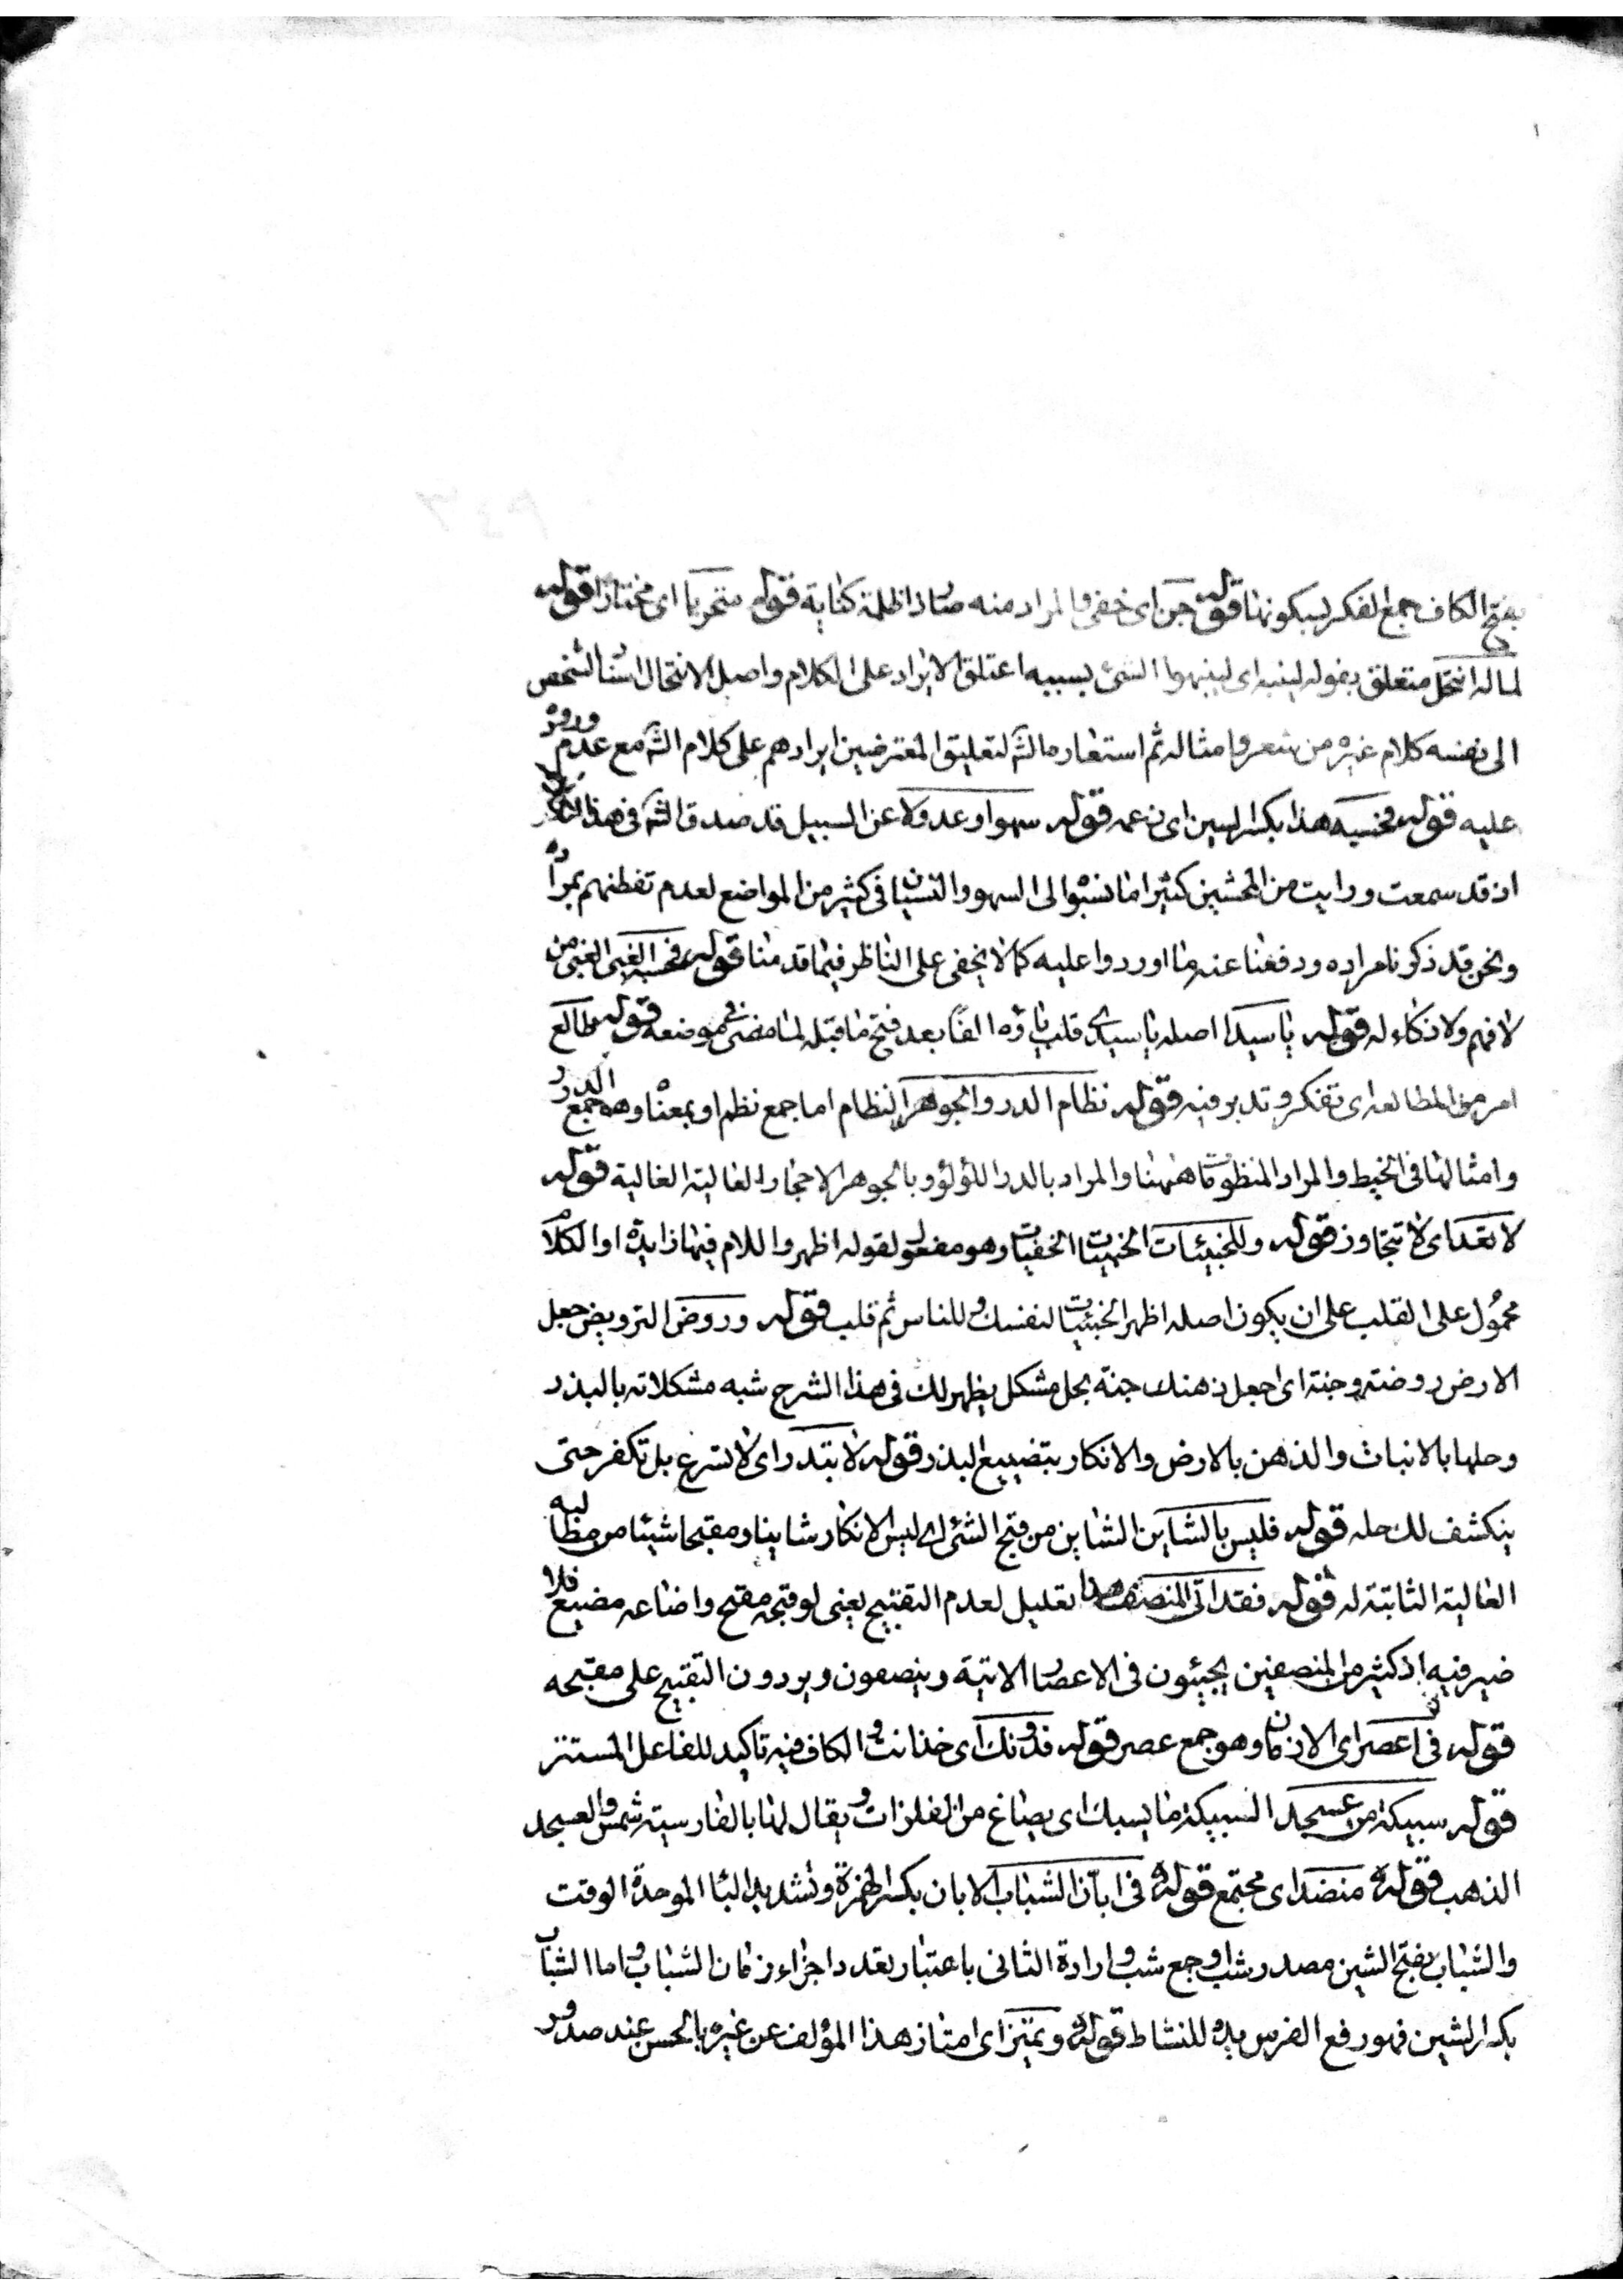 ١
بفتح الكاف جمع الفكر لبيكونها قوله جن اى خفى والمراد منه صار ذا ظلمة كناية قوله متحريا اى مختارا قوله
لما له انتحل متعلق بقوله لينبه اى لينبهوا الشئ بسببه اعتلق الايراد على الكلام واصل الانتحال اسناد الشخص
الى نفسه كلام غيره من شعر وامثاله ثم استعاره الش لتعليق المعترضين ايرادهم على كلام الش مع عدم وروده
عليه قوله فحسبه هذا بكسر السين اى زعمه قوله سهوا وعدولا عن السبيل قد صدق الش فى هذا الكلام
اذ قد سمعت ورايت من المحشين كثيرا ما نسبوا الى السهو والنسيان فى كثير من المواضع لعدم تفطنهم بمراده
ونحن قد ذكرنا مراده ودفعنا عنه ما اوردوا عليه كما لا يخفى على الناظر فيما قدمنا قوله فحسبه الغبى الغبى من
لا فهم ولا ذكاء له قوله يا سيدا اصله يا سيدى قلب ياؤه الفا بعد فتح ما قبله لما مضى فى موضعه قوله طالع
امر من المطالعه اى تفكر وتدبر فيه قوله نظام الدر والجوهر النظام اما جمع نظم او بمعناه وهو جمع الدرر
وامثالها فى الخيط والمراد المنظومات ههنا والمراد بالدر اللؤلؤ وبالجوهر الاحجار الغالية الغالية قوله
لا تعد اى لا تتجاوز قوله وللخبيئات الخبيئات الخفيات وهو مفعول لقوله اظهر واللام فيها زايدة او الكلام
محمول على القلب على ان يكون اصله اظهر الخبيئات لنفسك وللناس ثم قلب قوله وروض الترويض جعل
الارض روضته وجنة اى اجعل ذهنك جنة بحل مشكل يظهر لك فى هذا الشرح شبه مشكلاته بالبذر
وحلها بالانبات والذهن بالارض والانكار بتضييع البذر قوله لا تبتدر اى لا تسرع بل تكفر حتى
ينكشف لك حله قوله فليس بالشاين الشاين من قبح الشئ اى ليس الانكار شاينا ومقبحا شيئا من مطالبه
الغالية الثابتة له قوله فقد اتى المنصف هذا تعليل لعدم التقبيح يعنى لو قبحه مقبح واضاعه مضيع فلا
ضير فيه اذ كثير من المنصفين يجيئون فى الاعصار الاتية وينصفون ويردون التقبيح على مقبحه
قوله فى اعصر اى الازمان وهو جمع عصر قوله فدونك اى خذ انت و الكاف فيه تاكيد للفاعل المستتر
قوله سبيكة من عسجد السبيكة ما يسبك اى يصاغ من الفلزات و يقال لها بالفارسية شمش والعسجد
الذهب قوله منضدا اى مجتمع قوله فى ابان الشباب الابان بكسر الهمزة وتشديد الباء الموحدة الوقت
والشباب بفتح الشين مصدر شاب وجمع شب و ارادة الثانى باعتبار تعدد اجزاء زمان الشباب واما الشباب
بكسر الشين فهو رفع الفرس يده للنشاط قوله وتميز اى امتاز هذا المؤلف عن غيره بالحسن عند صدور